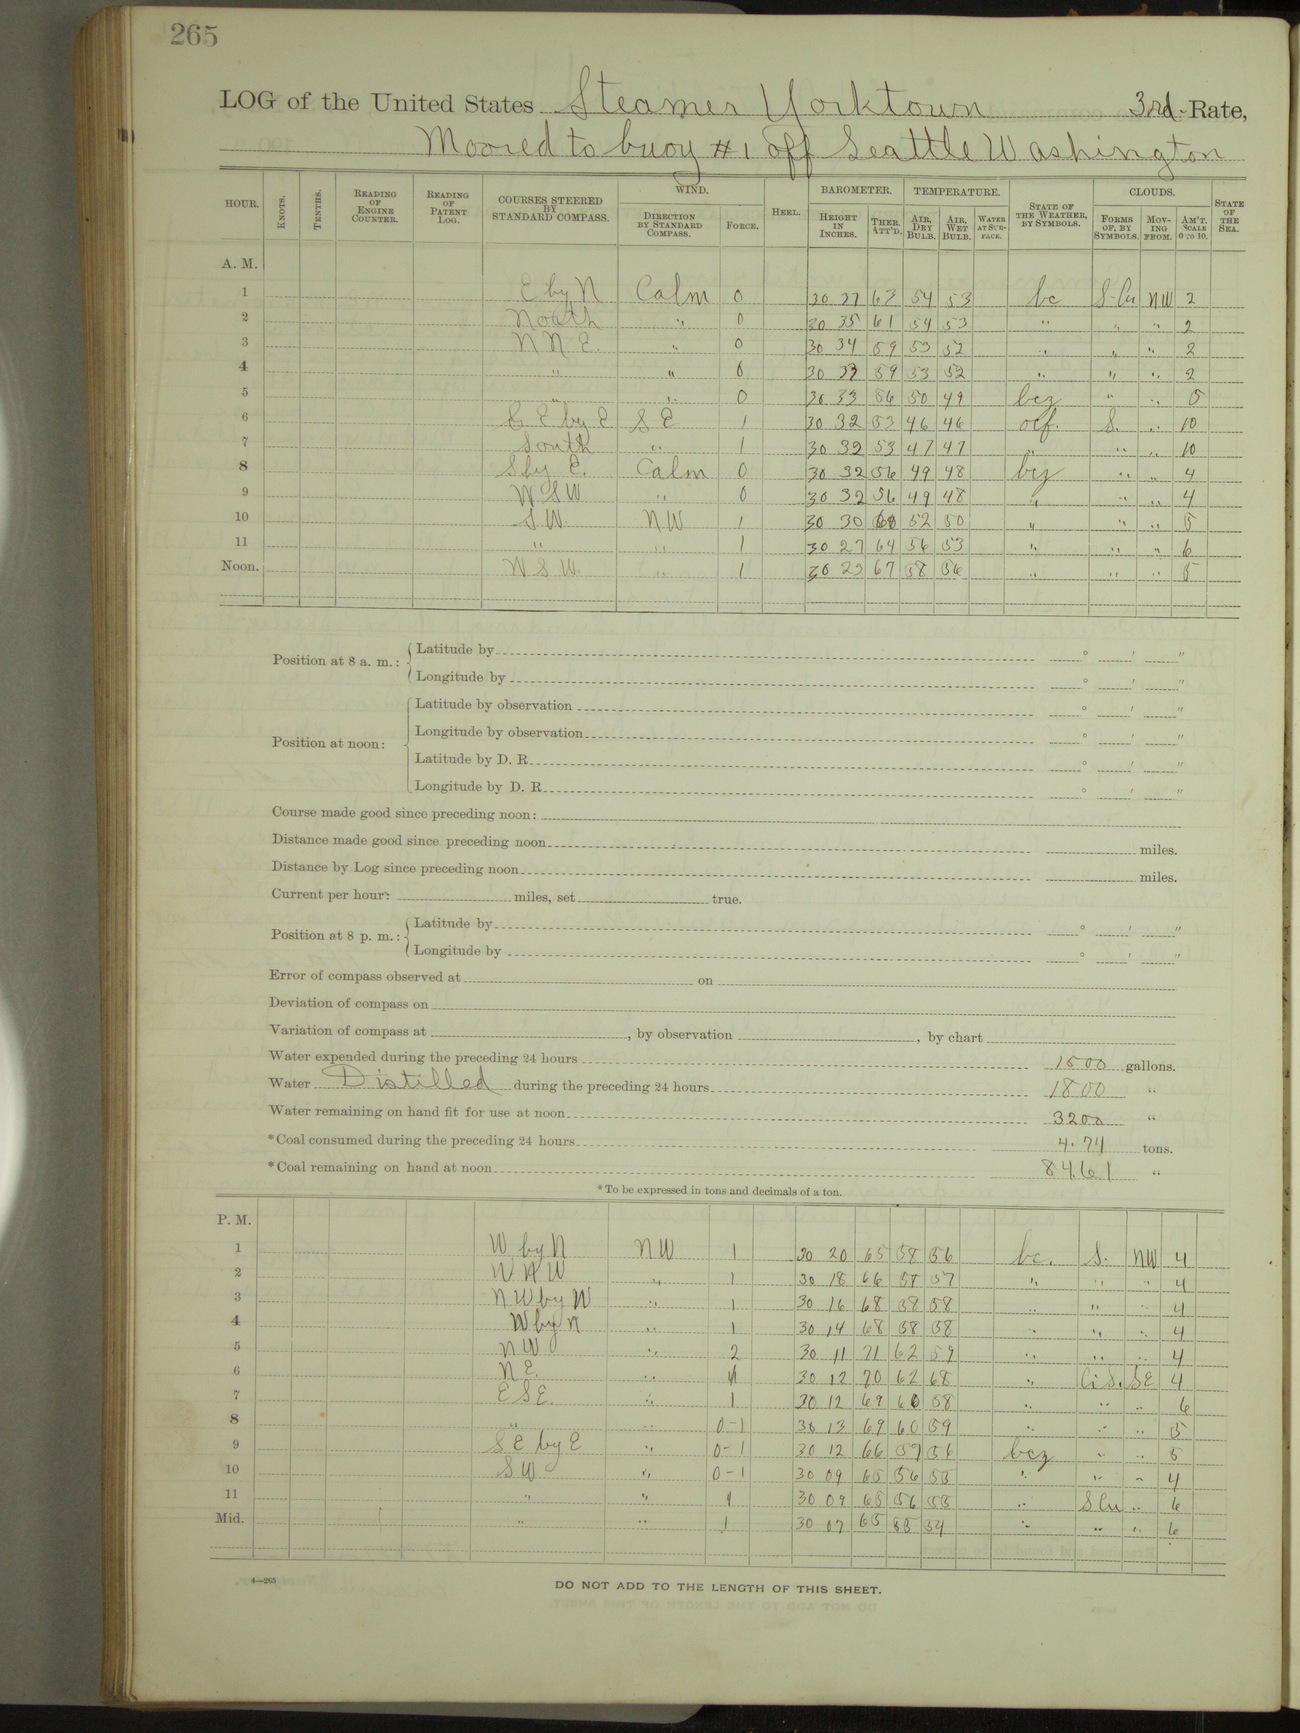 265
LOG of the United States Steamer Yorktown 3rd-Rate,
Moored to buoy #1 off Seattle Washington
HOUR. KNOTS. TENTHS. READING OF ENGINE COUNTER. READING OF PATENT LOG. COURSES STEERED BY STANDARD COMPASS. WIND. DIRECTION BY STANDARD COMPASS. FORCE. HEEL. BAROMETER. HEIGHT IN INCHES. THER. ATT'D. TEMPERATURE. AIR, DRY BULB. AIR, WET BULB. WATER AT SURFACE. STATE OF THE WEATHER, BY SYMBOLS. CLOUDS. FORMS OF, BY SYMBOLS. MOVING FROM. AM'T. SCALE 0 TO 10. STATE OF THE SEA.
A. M.
1 E by N Calm 0 30 37 63 54 53 bc S-Cu NW 2
2 North " 0 30 35 61 54 53 " " " 2
3 N N E. " 0 30 34 59 53 52 " " " 2
4 " " 0 30 33 59 53 52 " " " 2
5 " " 0 30 33 56 50 49 bcz " " 5
6 E by E S E 1 30 32 53 46 46 ocf. S. " 10
7 South " 1 30 32 53 47 47 " " " 10
8 S by E. Calm 0 30 32 56 49 48 bcz " " 4
9 W S W " 0 30 32 56 49 48 " " " 4
10 S W. N W 1 30 30 60 52 50 " " " 5
11 " " 1 30 27 64 56 53 " " " 6
Noon. W S W. " 1 30 23 67 58 56 " " " 5
Position at 8 a. m.: Latitude by ° ' "
Longitude by ° ' "
Position at noon: Latitude by observation ° ' "
Longitude by observation ° ' "
Latitude by D. R. ° ' "
Longitude by D. R. ° ' "
Course made good since preceding noon:
Distance made good since preceding noon miles.
Distance by Log since preceding noon miles.
Current per hour: miles, set true.
Position at 8 p. m.: Latitude by ° ' "
Longitude by ° ' "
Error of compass observed at on
Deviation of compass on
Variation of compass at , by observation , by chart
Water expended during the preceding 24 hours 1500 gallons.
Water Distilled during the preceding 24 hours 1800 "
Water remaining on hand fit for use at noon 3200 "
*Coal consumed during the preceding 24 hours 4.74 tons.
*Coal remaining on hand at noon 84.61 "
*To be expressed in tons and decimals of a ton.
P. M.
1 W by N N W 1 30 20 65 58 56 bc. S. NW 4
2 W N W " 1 30 18 66 58 57 " " " 4
3 N W by W " 1 30 16 68 58 58 " " " 4
4 W by N " 1 30 14 68 58 58 " " " 4
5 N W " 2 30 11 71 62 59 " " " 4
6 N E. " 1 30 12 70 62 68 " Ci S. SE 4
7 E S E. " 1 30 12 69 60 58 " " " 6
8 " " 0-1 30 13 69 60 59 " " " 5
9 S E by E " 0-1 30 12 66 57 56 bcz " " 5
10 S W " 0-1 30 09 65 56 55 " " " 4
11 " " 1 30 09 65 56 55 " S Cu " 6
Mid. " " 1 30 07 65 55 54 " " " 6
4—265
DO NOT ADD TO THE LENGTH OF THIS SHEET.